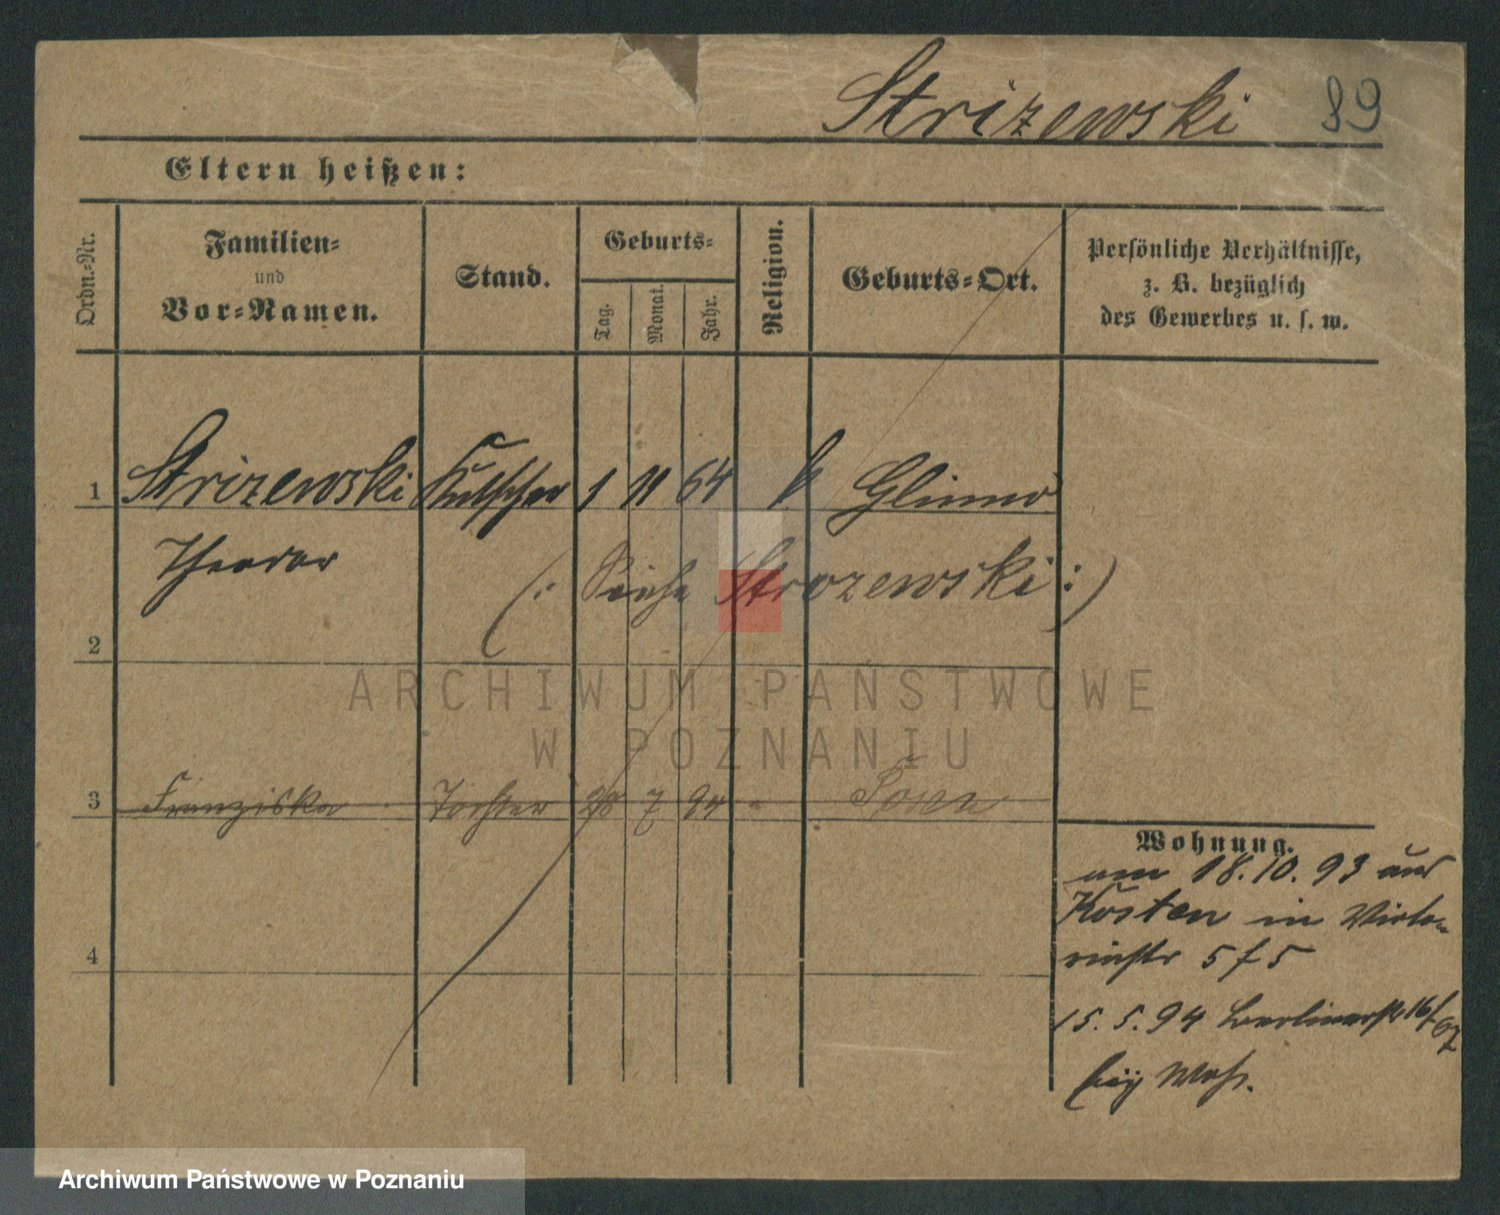 Strizewski 89
Eltern heißen:
Ordn.-Nr.
Familien-
und
Vor-Namen.
Stand.
Geburts-
Tag.
Monat.
Jahr.
Religion.
Geburts-Ort.
Persönliche Verhältnisse,
z. B. bezüglich
des Gewerbes u. s. w.
1 Strizewski Kutscher 1 11 64 k Glinno
Theodor
(: Siehe Strozewski :)
2
3 Franziska Tochter 28 7 94 Posen
4
Wohnung.
am 18.10.93 aus
Kosten in Victo-
riastr 5 f 5
15.5.94 Berlinerstr 16/
ARCHIWUM PAŃSTWOWE
W POZNANIU
Archiwum Państwowe w Poznaniu